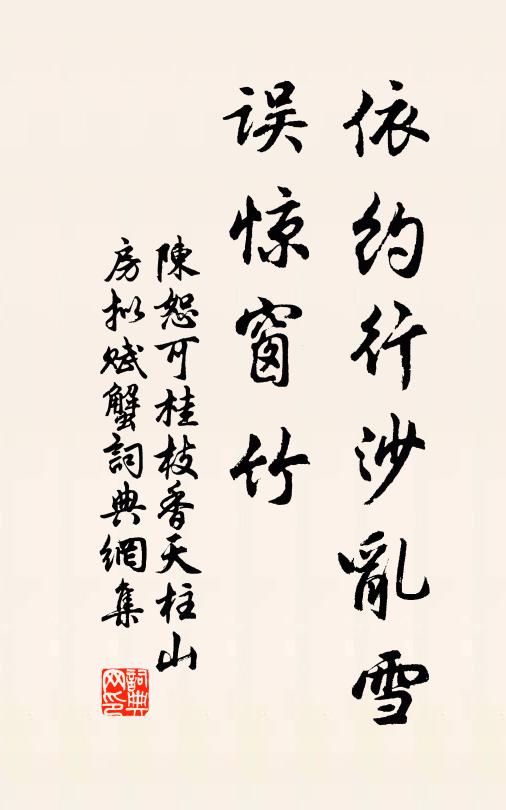 依约行沙亂雪
误惊窗竹
陳恕可桂枝香天柱山
房拟赋蟹詞典網集
詞典网印